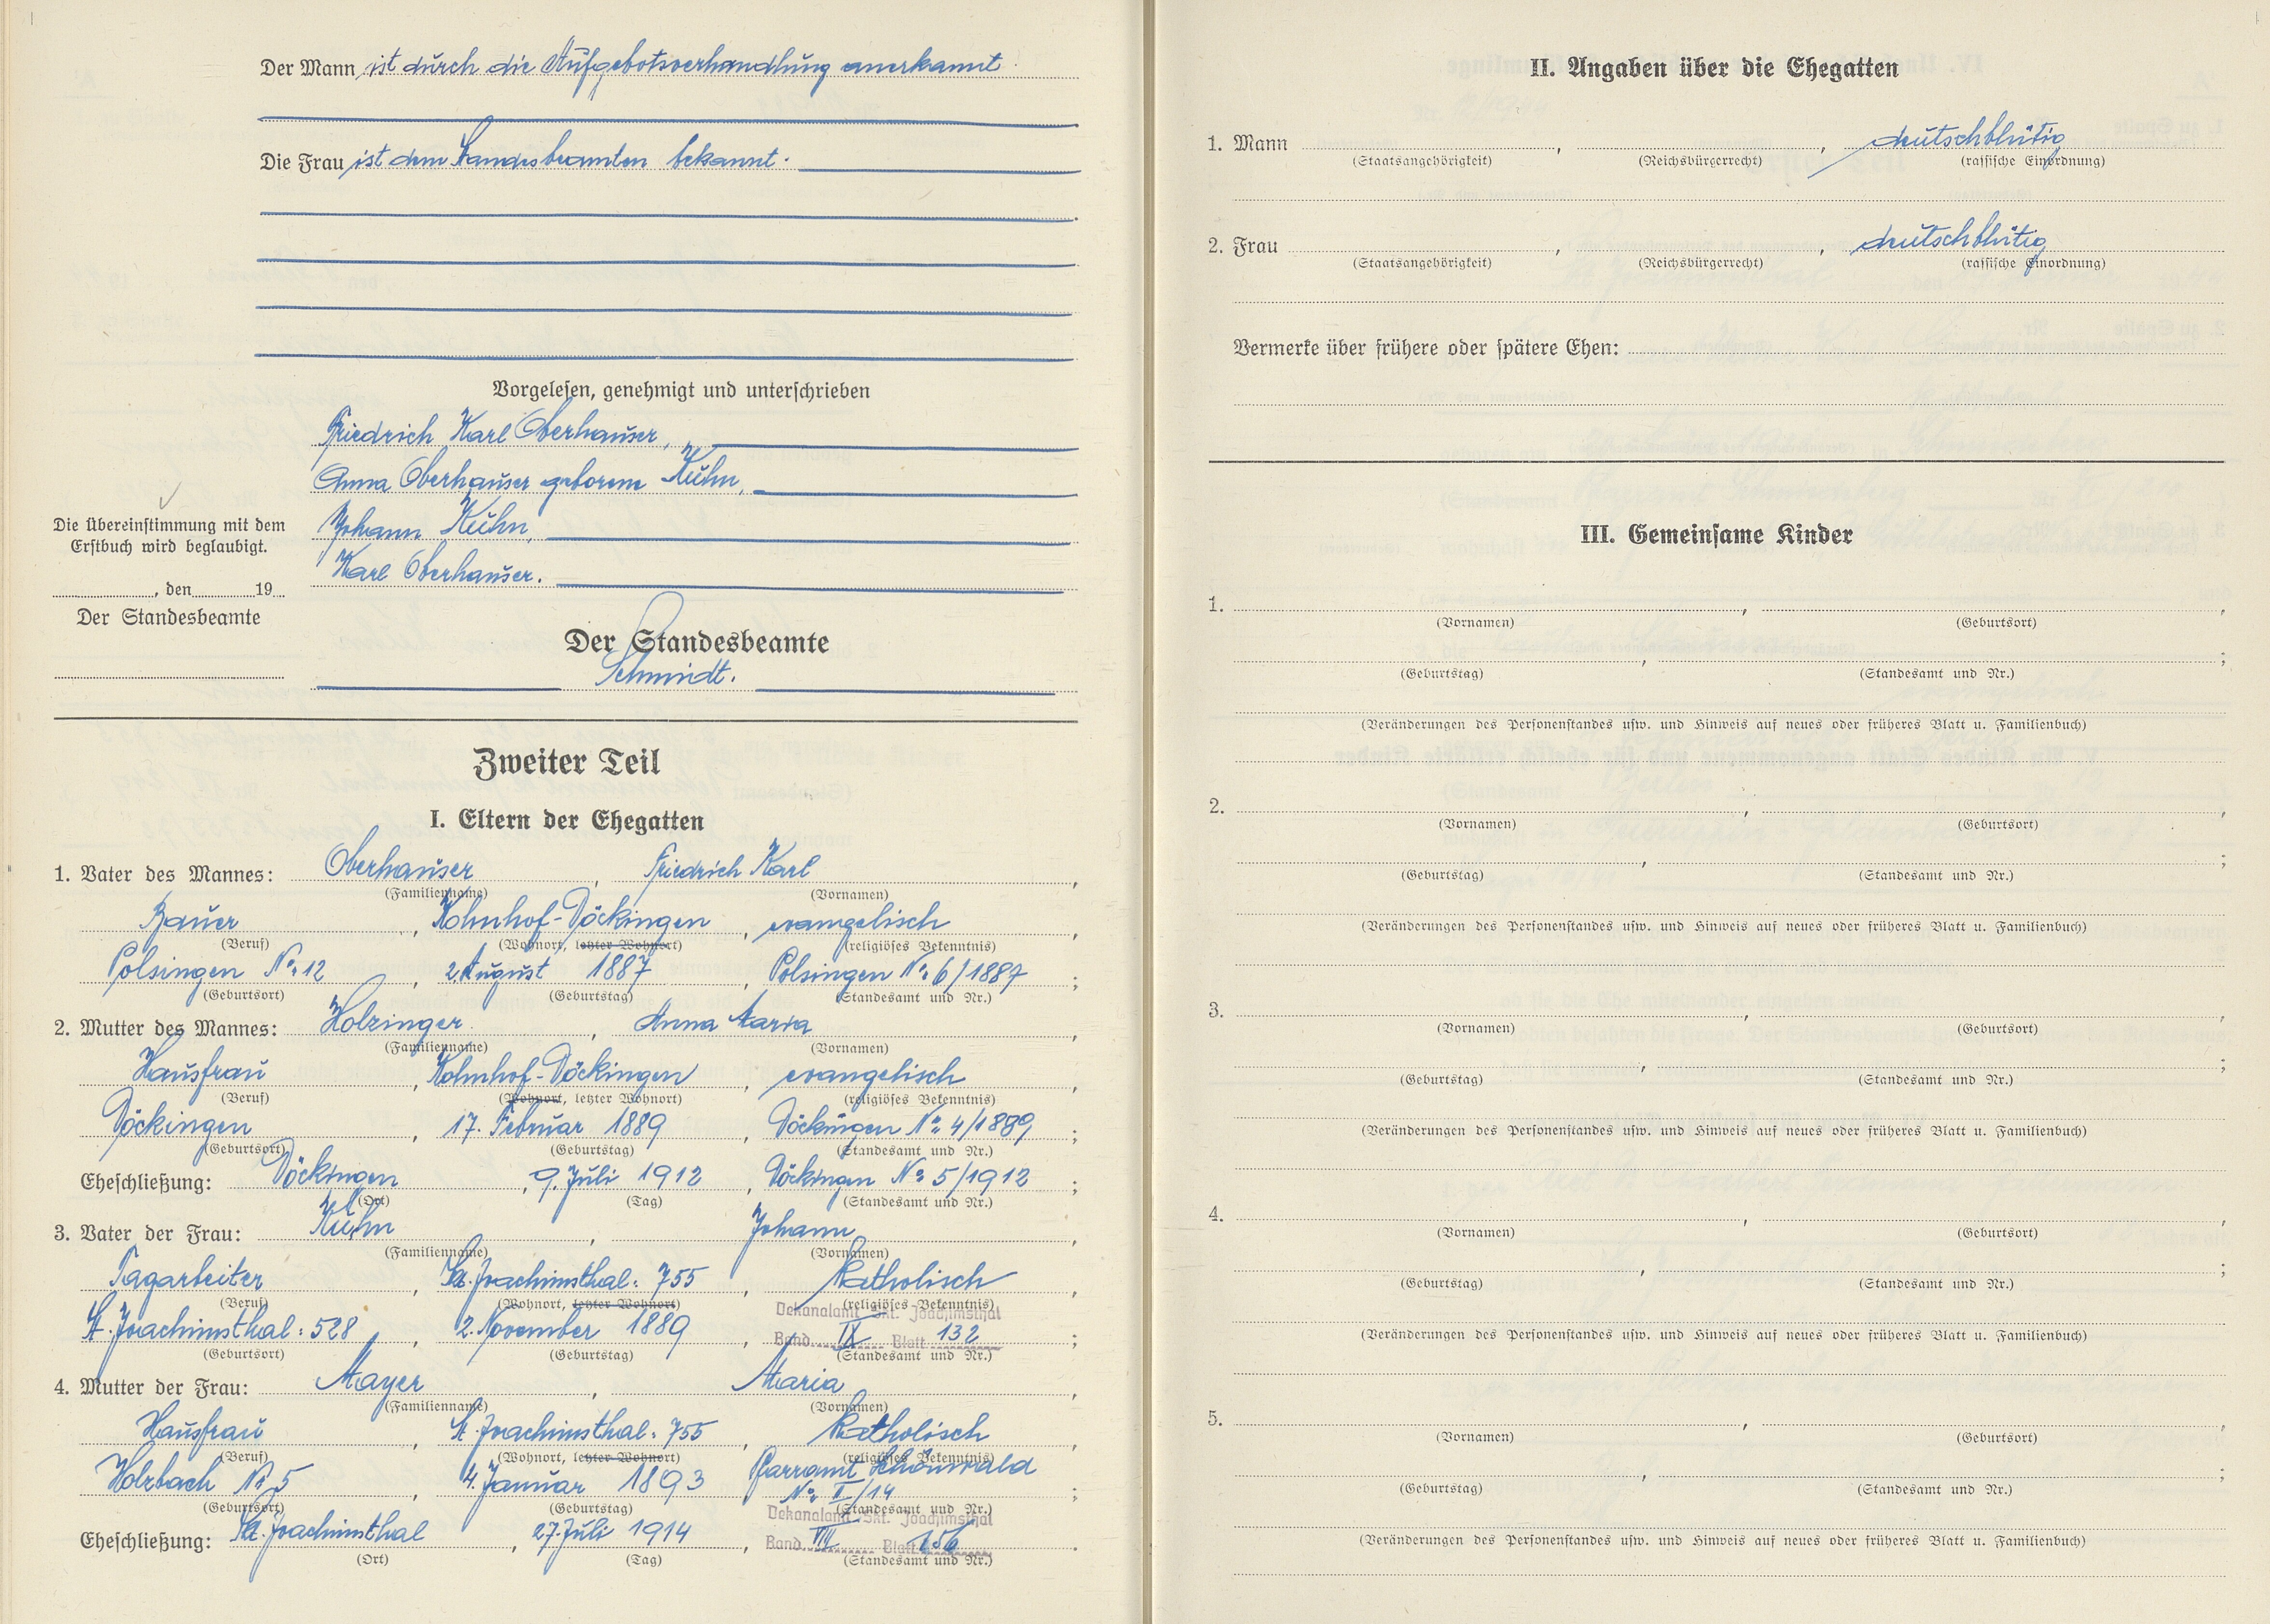 Der Mann ist durch die Aufgebotsverhandlung anerkannt
Die Frau ist dem Standesbeamten bekannt.
Vorgelesen, genehmigt und unterschrieben
Friedrich Karl Oberhauser,
Anna Oberhauser geborene Kühn,
Johann Kühn,
Karl Oberhauser.
Die Übereinstimmung mit dem
Erstbuch wird beglaubigt.
, den 19
Der Standesbeamte
Der Standesbeamte
Schmidt.
Zweiter Teil
I. Eltern der Ehegatten
1. Vater des Mannes: Oberhauser, Friedrich Karl,
(Familienname) (Vornamen)
Bauer, Kohnhof-Döckingen, evangelisch,
(Beruf) (Wohnort, letzter Wohnort) (religiöses Bekenntnis)
Polsingen No 12, 2. August 1887, Polsingen No 6/1887;
(Geburtsort) (Geburtstag) (Standesamt und Nr.)
2. Mutter des Mannes: Holzinger, Anna Maria,
(Familienname) (Vornamen)
Hausfrau, Kohnhof-Döckingen, evangelisch,
(Beruf) (Wohnort, letzter Wohnort) (religiöses Bekenntnis)
Döckingen, 17. Februar 1889, Döckingen No 4/1889;
(Geburtsort) (Geburtstag) (Standesamt und Nr.)
Eheschließung: Döckingen, 9. Juli 1912, Döckingen No 5/1912;
(Ort) (Tag) (Standesamt und Nr.)
3. Vater der Frau: Kühn, Johann,
(Familienname) (Vornamen)
Tagarbeiter, St. Joachimsthal: 755, katholisch,
(Beruf) (Wohnort, letzter Wohnort) (religiöses Bekenntnis)
Dekanalamt Skt. Joachimsthal
St. Joachimsthal: 528, 2. November 1889, Band IX Blatt 132;
(Geburtsort) (Geburtstag) (Standesamt und Nr.)
4. Mutter der Frau: Mayer, Maria,
(Familienname) (Vornamen)
Hausfrau, St. Joachimsthal: 755, katholisch,
(Beruf) (Wohnort, letzter Wohnort) (religiöses Bekenntnis)
Holzbach No 5, 4. Januar 1893, Pfarramt Schönwald
No I/14;
(Geburtsort) (Geburtstag) (Standesamt und Nr.)
Dekanalamt Skt. Joachimsthal
Eheschließung: St. Joachimsthal, 27. Juli 1914, Band VII Blatt 156.
(Ort) (Tag) (Standesamt und Nr.)
II. Angaben über die Ehegatten
1. Mann , , deutschblütig
(Staatsangehörigkeit) (Reichsbürgerrecht) (rassische Einordnung)
2. Frau , , deutschblütig
(Staatsangehörigkeit) (Reichsbürgerrecht) (rassische Einordnung)
Vermerke über frühere oder spätere Ehen:
III. Gemeinsame Kinder
1. , ,
(Vornamen) (Geburtsort)
, ;
(Geburtstag) (Standesamt und Nr.)
(Veränderungen des Personenstandes usw. und Hinweis auf neues oder früheres Blatt u. Familienbuch)
2. , ,
(Vornamen) (Geburtsort)
, ;
(Geburtstag) (Standesamt und Nr.)
(Veränderungen des Personenstandes usw. und Hinweis auf neues oder früheres Blatt u. Familienbuch)
3. , ,
(Vornamen) (Geburtsort)
, ;
(Geburtstag) (Standesamt und Nr.)
(Veränderungen des Personenstandes usw. und Hinweis auf neues oder früheres Blatt u. Familienbuch)
4. , ,
(Vornamen) (Geburtsort)
, ;
(Geburtstag) (Standesamt und Nr.)
(Veränderungen des Personenstandes usw. und Hinweis auf neues oder früheres Blatt u. Familienbuch)
5. , ,
(Vornamen) (Geburtsort)
, ;
(Geburtstag) (Standesamt und Nr.)
(Veränderungen des Personenstandes usw. und Hinweis auf neues oder früheres Blatt u. Familienbuch)